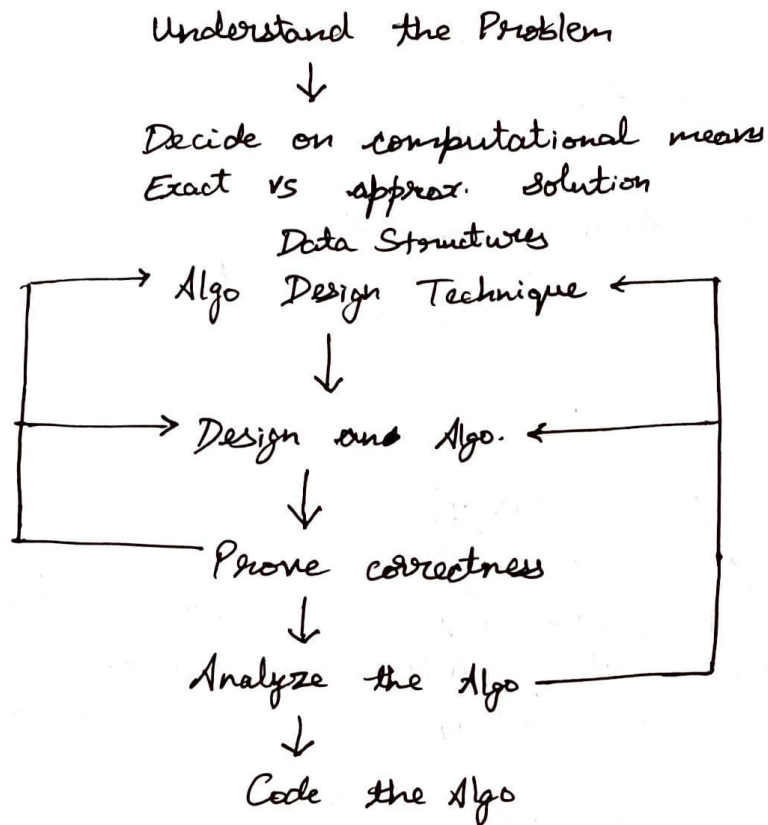 Understand the Problem
Decide on computational means
Exact vs approx. solution
Data Structures
Algo Design Technique
Design an Algo.
Prove correctness
Analyze the Algo
Code the Algo